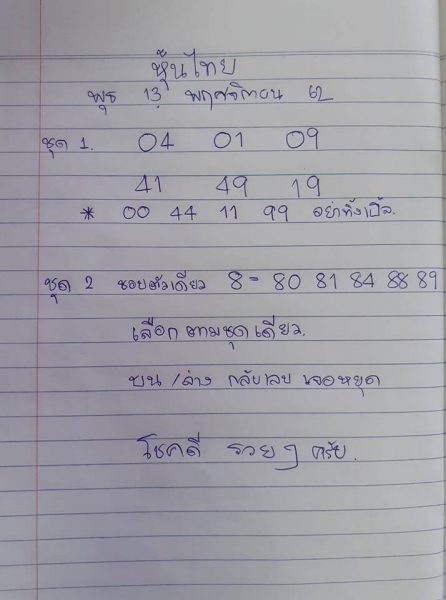 หุ้นไทย
พุธ 13 พฤศจิกายน 62
ชุด 1. 04 01 09
41 49 19
* 00 44 11 99 อย่าทิ้งเบิ้ล.
ชุด 2 ชอบตัวเดียว 8 - 80 81 84 88 89
เลือกตามชุดเดียว.
บน /ล่าง กลับเลข เจอหยุด
โชคดี รวยๆ ครับ.